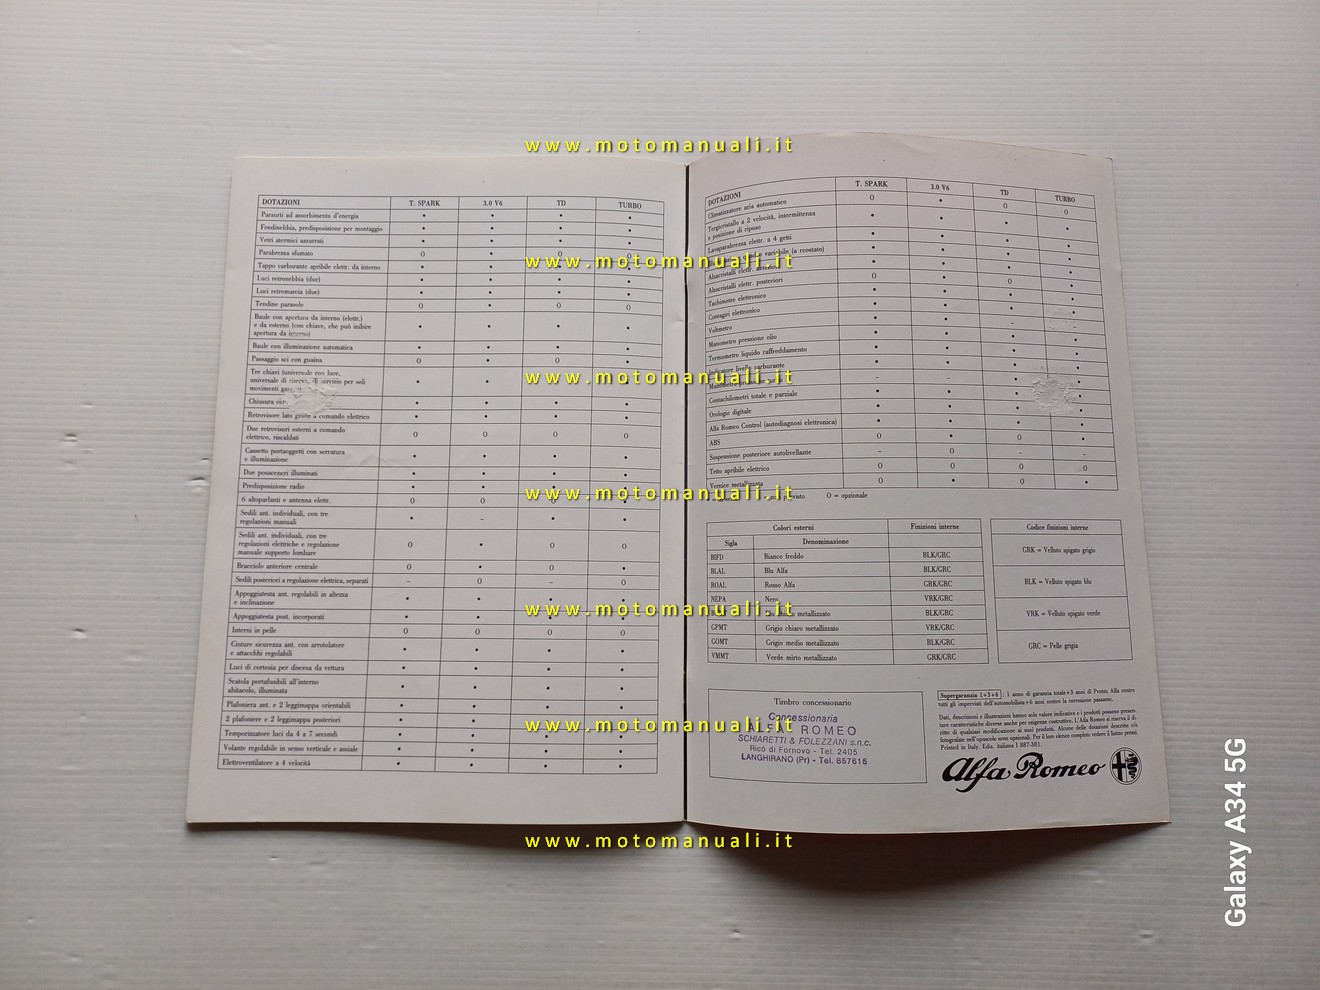 www.motomanuali.it
DOTAZIONI T. SPARK 3.0 V6 TD TURBO
Paraurti ad assorbimento d'energia • • • •
Fendinebbia, predisposizione per montaggio • • • •
Vetri atermici azzurrati • • • •
Parabrezza sfumato O • O
www.motomanuali.it
Tappo carburante apribile elettr. da interno • • • •
Luci retronebbia (due) • • • •
Luci retromarcia (due) • • • •
Tendine parasole O • O O
Baule con apertura da interno (elettr.)
e da esterno (con chiave, che può inibire
apertura da interno) • • • •
Baule con illuminazione automatica • • • •
Passaggio sci con guaina O • O •
Tre chiavi (universale con luce,
universale di riserva, di servizio per soli
movimenti • •
www.motomanuali.it
Chiusura • • • •
Retrovisore lato guida a comando elettrico • • • •
Due retrovisori esterni a comando
elettrico, riscaldati O O O O
Cassetto portaoggetti con serratura
e illuminazione • • • •
Due posaceneri illuminati • • • •
Predisposizione radio • • • •
www.motomanuali.it
6 altoparlanti e antenna elettr. O O O O
Sedili ant. individuali, con tre
regolazioni manuali • – • •
Sedili ant. individuali, con tre
regolazioni elettriche e regolazione
manuale supporto lombare O • O O
Bracciolo anteriore centrale O • O •
Sedili posteriori a regolazione elettrica, separati – O – O
Appoggiatesta ant. regolabili in altezza
e inclinazione • • • •
www.motomanuali.it
Appoggiatesta post. incorporati • • • •
Interni in pelle O O O O
Cinture sicurezza ant. con arrotolatore
e attacchi regolabili • • • •
Luci di cortesia per discesa da vettura • • • •
Scatola portafusibili all'interno
abitacolo, illuminata • • • •
Plafoniera ant. e 2 leggimappa orientabili • • • •
2 plafoniere e 2 leggimappa posteriori • • • •
www.motomanuali.it
Temporizzatore luci da 4 a 7 secondi • • • •
Volante regolabile in senso verticale e assiale • • • •
Elettroventilatore a 4 velocità • • • •
www.motomanuali.it
DOTAZIONI T. SPARK 3.0 V6 TD TURBO
Climatizzatore aria automatico O • O O
Tergicristallo a 2 velocità, intermittenza
e posizione di riposo • • • •
Lavaparabrezza elettr. a 4 getti • • • •
variabile (a reostato)
Alzacristalli elettr.
Alzacristalli elettr. posteriori O • O •
Tachimetro elettronico
Contagiri elettronico
Voltmetro
Manometro pressione olio
Termometro liquido raffreddamento
Indicatore livello carburante
Manometro
Contachilometri totale e parziale
Orologio digitale
Alfa Romeo Control (autodiagnosi elettronica) • • • •
ABS O • O •
Sospensione posteriore autolivellante – O – –
Tetto apribile elettrico O O O O
Vernice metallizzata O • O •
O = opzionale
Colori esterni Finizioni interne
Sigla Denominazione
BIFD Bianco freddo BLK/GRC
BLAL Blu Alfa BLK/GRC
ROAL Rosso Alfa GRK/GRC
NEPA Nero VRK/GRC
metallizzato BLK/GRC
GPMT Grigio chiaro metallizzato VRK/GRC
GOMT Grigio medio metallizzato BLK/GRC
VMMT Verde mirto metallizzato GRK/GRC
Codice finizioni interne
GRK = Velluto spigato grigio
BLK = Velluto spigato blu
VRK = Velluto spigato verde
GRC = Pelle grigia
Timbro concessionario
Concessionaria
ALFA ROMEO
SCHIARETTI & FOLEZZANI s.n.c.
Ricò di Fornovo - Tel. 2405
LANGHIRANO (Pr) - Tel. 857615
Supergaranzia 1+3+6: 1 anno di garanzia totale+3 anni di Pronto Alfa contro
tutti gli imprevisti dell'automobilista+6 anni contro la corrosione passante.
Dati, descrizioni e illustrazioni hanno solo valore indicativo e i prodotti possono presen-
tare caratteristiche diverse anche per esigenze costruttive. L'Alfa Romeo si riserva il di-
ritto di qualsiasi modificazione ai suoi prodotti. Alcune delle dotazioni descritte e/o
fotografate nell'opuscolo sono opzionali. Per il loro elenco completo vedere il listino prezzi.
Printed in Italy. Ediz. italiana I 887-381.
Alfa Romeo
Galaxy A34 5G